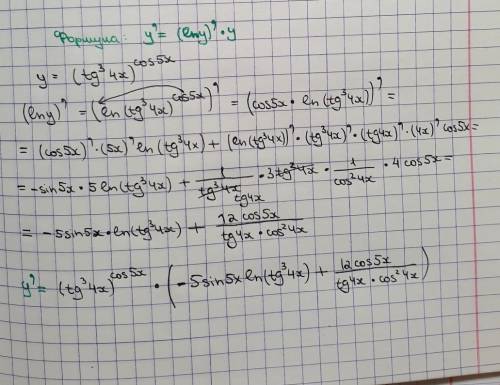 Формула: y' = (ln y)' · y
y = (tg³4x)^cos5x
(ln y)' = (ln(tg³4x)^cos5x)' = (cos5x · ln(tg³4x))' =
= (cos5x)' · (5x)' ln(tg³4x) + (ln(tg³4x))' · (tg³4x)' · (tg4x)' · (4x)' cos5x =
= -sin5x · 5 ln(tg³4x) + 1/tg³4x tg4x · 3tg²4x · 1/cos²4x · 4cos5x =
= -5sin5x · ln(tg³4x) + 12cos5x/tg4x · cos²4x
y' = (tg³4x)^cos5x · (-5sin5x ln(tg³4x) + 12cos5x/tg4x · cos²4x)